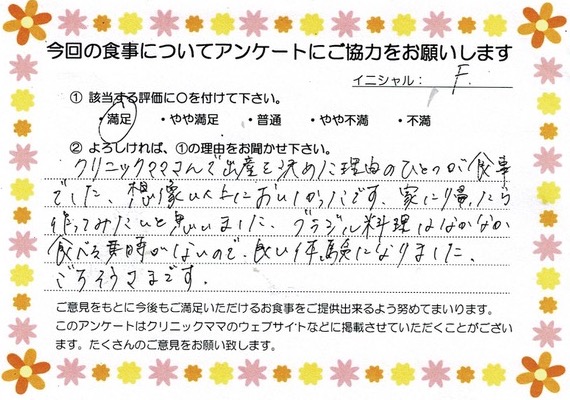 今回の食事についてアンケートにご協力をお願いします
イニシャル： F.
① 該当する評価に○を付けて下さい。
・満足 ・やや満足 ・普通 ・やや不満 ・不満
② よろしければ、①の理由をお聞かせ下さい。
クリニックママさんで出産を決めた理由のひとつが食事
でした。想像以上においしかったです。家に帰ったら
作ってみたいと思いました。ブラジル料理はなかなか
食べる時がないので、良い体験になりました。
ごちそうさまです。
ご意見をもとに今後もご満足いただけるお食事をご提供出来るよう努めてまいります。
このアンケートはクリニックママのウェブサイトなどに掲載させていただくことがござい
ます。たくさんのご意見をお願い致します。